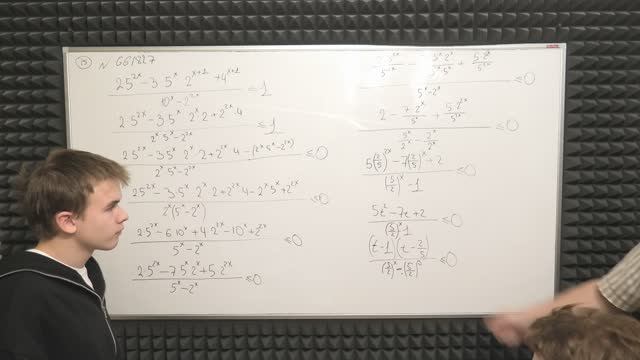 (15) N 661827
(2·5^{2x} - 3·5^x·2^{x+1} + 4^{x+1}) / (10^x - 2^{2x}) ≤ 1
(2·5^{2x} - 3·5^x 2^x·2 + 2^{2x}·4) / (2^x 5^x - 2^{2x}) ≤ 1
(2·5^{2x} - 3·5^x 2^x·2 + 2^{2x}·4 - (2^x 5^x - 2^{2x})) / (2^x 5^x - 2^{2x}) ≤ 0
(2·5^{2x} - 3·5^x 2^x·2 + 2^{2x}·4 - 2^x 5^x + 2^{2x}) / (2^x (5^x - 2^x)) ≤ 0
(2·5^{2x} - 6·10^x + 4·2^{2x} - 10^x + 2^{2x}) / (5^x - 2^x) ≤ 0
(2·5^{2x} - 7·5^x 2^x + 5·2^{2x}) / (5^x - 2^x) ≤ 0
≤ 0
(2 - 7·2^x / 5^x + 5·2^{2x} / 5^{2x}) / (5^x / 2^x - 2^x / 2^x) ≤ 0
(5(2/5)^{2x} - 7(2/5)^x + 2) / ((5/2)^x - 1) ≤ 0
(5t^2 - 7t + 2) / ((5/2)^x - 1) ≤ 0
(t - 1)(t - 2/5) / ((5/2)^x - (5/2)^0) ≤ 0